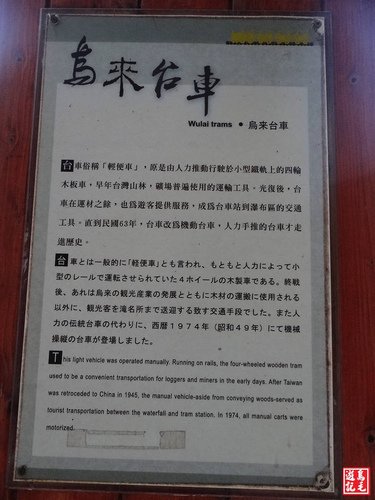 烏來台車
Wulai trams • 烏來台車
台車俗稱「輕便車」，原是由人力推動行駛於小型鐵軌上的四輪
木板車，早年台灣山林，礦場普遍使用的運輸工具。光復後，台
車在運材之餘，也為遊客提供服務，成為台車站到瀑布區的交通
工具。直到民國63年，台車改為機動台車，人力手推的台車才走
進歷史。
台車とは一般的に「軽便車」とも言われ、もともと人力によって小
型のレールで運転させられていた４ホイールの木製車である。終戦
後、あれは烏来の観光産業の発展とともに木材の運搬に使用される
以外に、観光客を滝名所まで送迎する致す交通手段でした。また人
力の伝統台車の代わりに、西暦１９７４年（昭和４９年）にて機械
操縦の台車が登場しました。
This light vehicle was operated manually. Running on rails, the four-wheeled wooden tram
used to be a convenient transportation for loggers and miners in the early days. After Taiwan
was retroceded to China in 1945, the manual vehicle-aside from conveying woods-served as
tourist transportation between the waterfall and tram station. In 1974, all manual carts were
motorized.